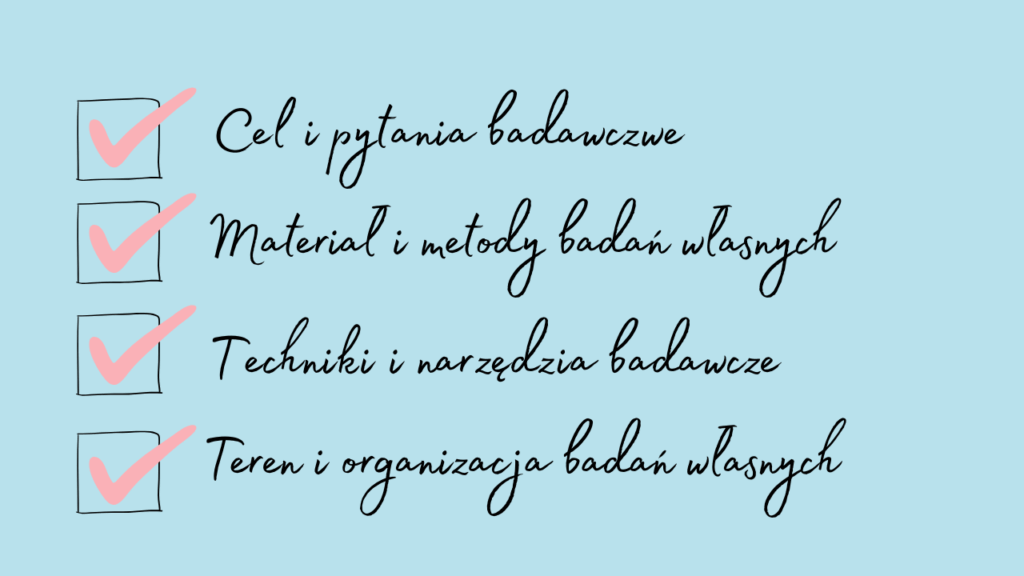 Cel i pytania badawczwe
Materiał i metody badań własnych
Techniki i narzędzia badawcze
Teren i organizacja badań własnych